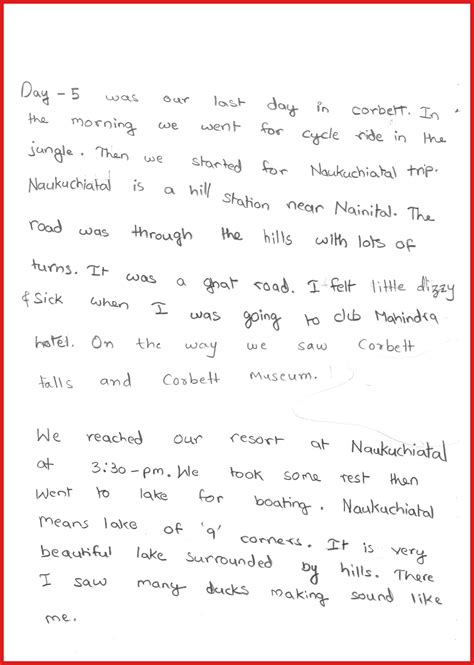 Day - 5 was our last day in corbett. In
the morning we went for cycle ride in the
jungle. Then we started for Naukuchiatal trip.
Naukuchiatal is a hill station near Nainital. The
road was through the hills with lots of
turns. It was a ghat road. I felt little dizzy
& Sick when I was going to club Mahindra
hotel. On the way we saw Corbett
falls and Corbett Museum.
We reached our resort at Naukuchiatal
at 3:30-pm. We took some rest then
went to lake for boating. Naukuchiatal
means lake of '9' corners. It is very
beautiful lake surrounded by hills. There
I saw many ducks making sound like
me.